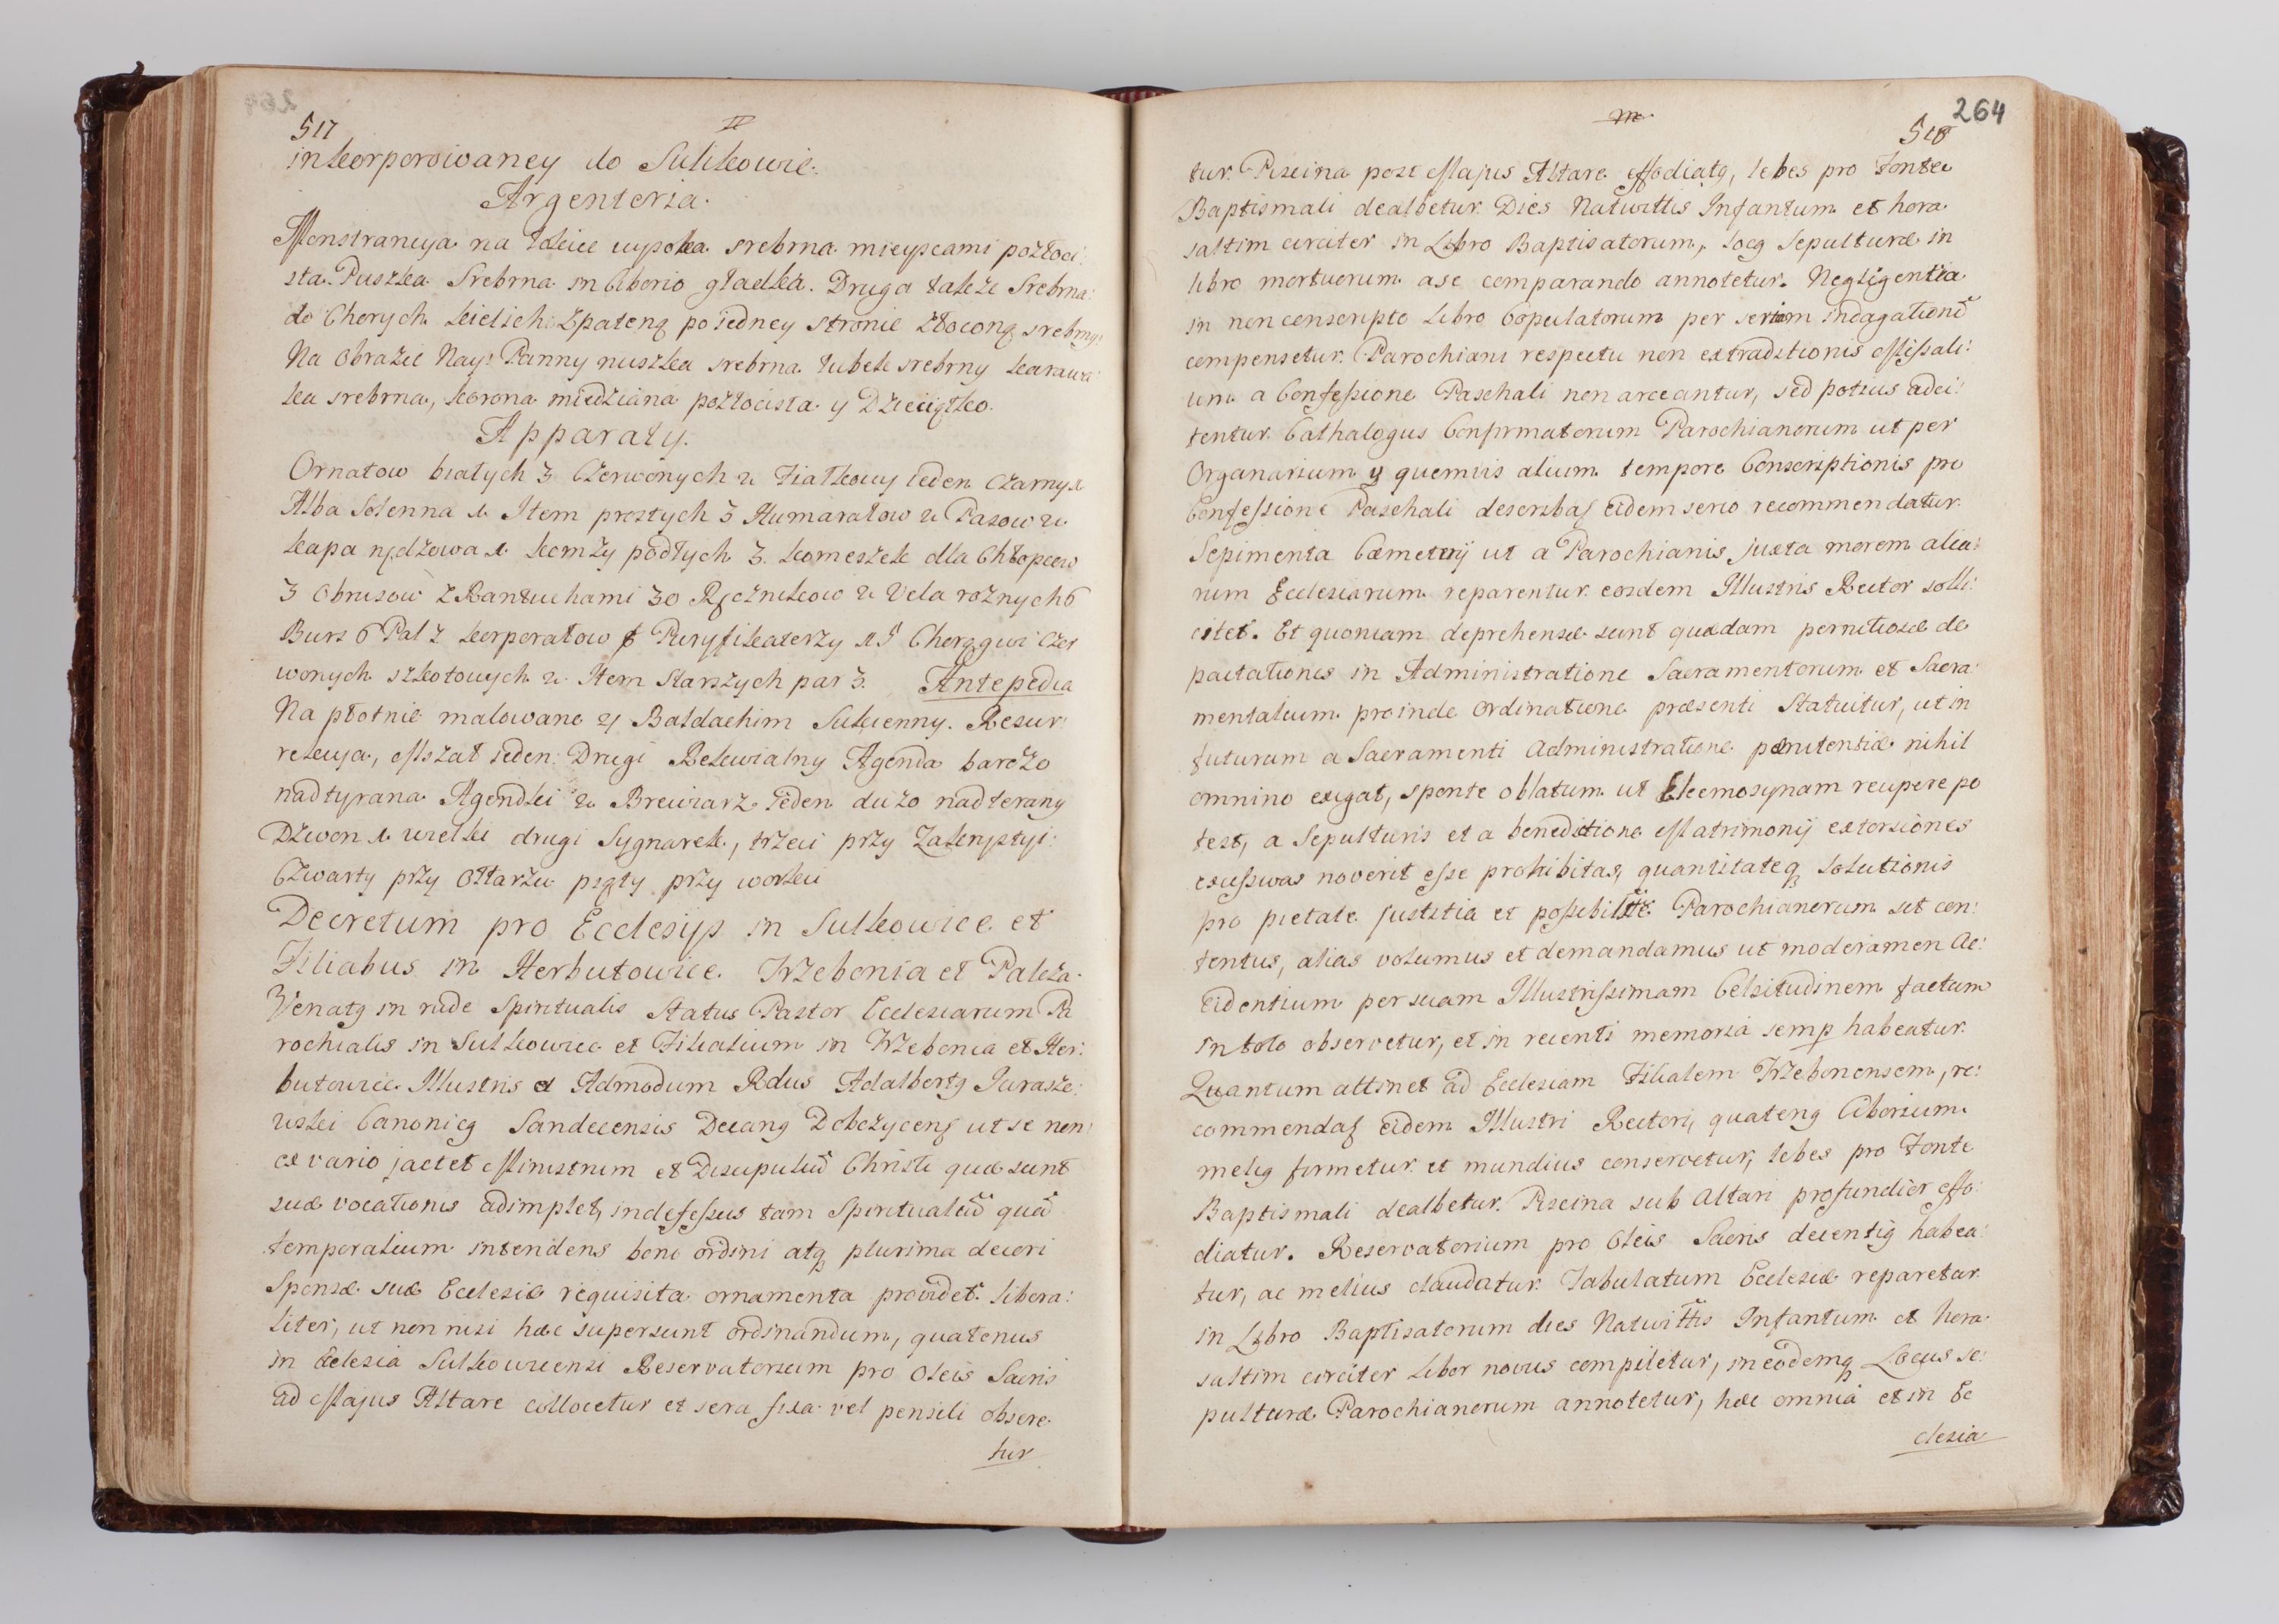 517
II
inkorporowaney do Sulikowic.
Argenteria.
Monstrancya na łokiec wysoka srebrna mieyscami pozłoci:
sta. Puszka Srebrna in Ciborio gładka. Druga także Srebrna
do Chorych kielich zpateną po iedney stronie złoconą srebrny:
Na Obrazie Nayś: Panny nuszka srebrna tubek srebrny karawa:
ka srebrna, korona miedziana pozłocista y Dzieciątko.
Apparaty.
Ornatow białych 3 Czerwonych 2 Fiałkowy ieden Czarny 1.
Alba Solenna 1. Item prostych 3 Humerałow 2 Pasow 2.
kapa nędzowa 1. komży podłych 3. komeszek dla Chłopcow
3 Obrusow z Rantuchami 30 Ręcznikow 2 Vela rożnych 6
Burs 6 Pal 2 korporałow Puryfikaterzy Chorągwi Czer
wonych szkotowych 2. Item starszych par 3. Antepedia
Na płotnie malowane 4 Baldachim Sukienny. Resur:
rekcya, Mszał ieden Drugi Rekwialny Agenda bardzo
nadtyrana Agendki 2 Brewiarz ieden dużo nadterany
Dzwon 1. wielki drugi Sygnarek, trzeci przy Zakrystyi:
Czwarty przy Ołtarzu piąty przy worku
Decretum pro Ecclesijs in Sulkowice et
Filiabus in Herbutowice. Trzebonia et Palcza.
Venatq in rude Spiritualis Status Pastor Ecclesiarum Pa
rochialis in Sulkowice et Filialium in Trzebonia et Her:
butowice Illustris et Admodum Rdus Adalbertq Jarasze:
wski Canonicq Sandecensis Decanq Dobczycenś ut se non
ex vario jactet Ministrum et Discipulũ Christi quæ sunt
suæ vocationis adimplet, indefessus tam Spiritualiũ quã
temporalium intendens bono ordini atq plurima decori
Sponsæ suæ Ecclesiæ requisita ornamenta providet libera:
liter, ut non nisi hæc supersunt ordinandum, quatenus
in Ecclesia Sulkowicensi Reservatorium pro Oleis Sacris
ad Majus Altare collocetur et sera fixa vel pensili obsere
tur
264
518
m.
tur. Piscina post Majus Altare effodiatq, lebes pro Fonte
Baptismali dealbetur. Dies Nativittis Infantum et hora
saltim circiter in Libro Baptisatorum, locq Sepulturæ in
libro mortuorum a se comparando annotetur. Negligentia
in non conscripto Libro Copulatorum per seriam indagationẽ
compensetur. Parochiani respectu non extraditionis Missali:
um a Confessione Paschali non arceantur, sed potius adci:
tentur. Cathalogus Confirmatorum Parochianorum ut per
Organarium y quemvis alium tempore Conscriptionis pro
Confessione Paschali describaś eidem serio recommendatur.
Sepimenta Cœmeterij ut a Parochianis juxta morem alia:
rum Ecclesiarum reparentur eosdem Illustris Rector solli:
citet. Et quoniam deprehensæ sunt quædam pernitiosæ de
pactationes in Administratione Sacramentorum et Sacra:
mentalium proinde Ordinatione præsenti Statuitur, ut in
futurum a Sacramenti Administratione pœnitentiæ nihil
omnino exigat, sponte oblatum ut Eleemosynam recipere po
test, a Sepulturis et a beneditione Matrimonij extorsiones
excessivas noverit esse prohibitas, quantitateq solutionis
pro pietate justitia et possibilitte Parochianorum sit con:
tentus, alias volumus et demandamus ut moderamen Ac:
cidentium per suam Illustrissimam Celsitudinem factum
in toto observetur, et in recenti memoria semp habeatur.
Quantum attinet ad Ecclesiam Filialem Trzebonensem, re:
commendaś eidem Illustri Rectori, quatenq Ciborium
meliq firmetur et mundius conservetur, lebes pro Fonte
Baptismali dealbetur. Piscina sub Altari profundior effo:
diatur. Reservatorium pro Oleis Sacris decentiq habea:
tur, ac melius claudatur. Tabulatum Ecclesiæ reparetur
in Libro Baptisatorum dies Nativittis Infantum et hora
saltim circiter Liber novus compiletur, in eodemq Locus se:
pulturæ Parochianorum annotetur, hæc omnia et in Ec
clesia